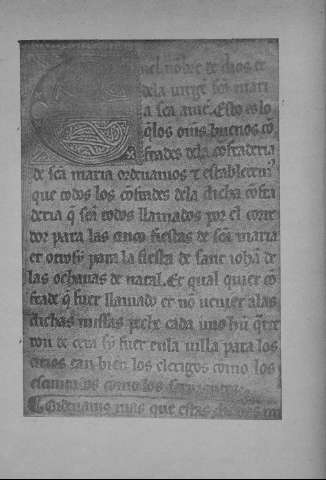 nel nõbre de dios et
dela uirgẽ sc̃a mari
a sc̃a ame. Esto es lo
q̃ los om̃s buenos cõ
frades dela cõfraderia
de sc̃a maria ordenamos τ establecem̃
que todos los cõfrades dela dicha cofra
deria q̃ seã todos llamados por el corre
dor para las cinco fiestas de sc̃a maria
et otrosỹ para la fiesta de sant iohã de
las ochauas de natal. Et qual quier cõ
frade q̃ fuer llamado et nõ uenier alas
dichas missas peche cada uno
de cera sỹ fuer enla uilla para los
cirios tan bien los clerigos como los
como los
Ordenamos mas que estas